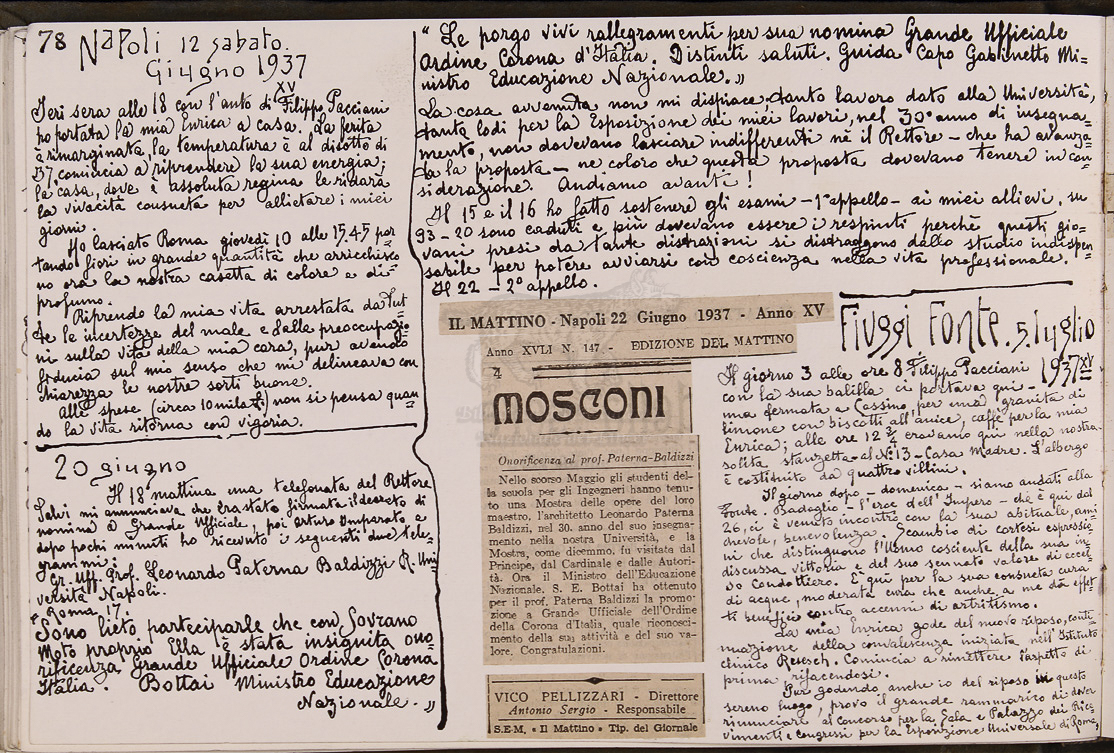 78 Napoli 12 sabato.
Giugno 1937
XV
Ieri sera alle 18 con l'auto di Filippo Pacciani
ho portata la mia Enrica a casa. La ferita
è rimarginata, la temperatura è al disotto di
37, comincia a riprendere la sua energia;
la casa, dove è assoluta regina le ridarà
la vivacità consueta per allietare i miei
giorni.
Ho lasciato Roma giovedì 10 alle 15.45 por=
tando fiori in grande quantità che arricchisco=
no ora la nostra casetta di colore e di
profumo.
Riprendo la mia vita arrestata da tut
te le incertezze del male e dalle preoccupazio=
ni sulla vita della mia cara, pur avendo
fiducia sul mio senso che mi delineava con
chiarezza le nostre sorti buone.
Alle spese (circa 10 mila £.) non si pensa quan=
do la vita ritorna con vigoria.
20 giugno
Il 18 mattina una telefonata del Rettore
Salvi mi annunciava che era stato firmato il decreto di
nomina a Grande Ufficiale, poi Arturo Imperato, e
dopo pochi minuti ho ricevuto i seguenti due tele=
grammi:
Gr. Uff. Prof. Leonardo Paterna Baldizzi R. Uni
versità Napoli.
"Roma 17.
Sono lieto parteciparle che con Sovrano
Moto proprio Ella è stata insignita ono=
rificenza Grande Ufficiale Ordine Corona
Italia. Bottai Ministro Educazione
Nazionale. „
" Le porgo vivi rallegramenti per sua nomina Grande Ufficiale
Ordine Corona d'Italia. Distinti saluti. Guida Capo Gabinetto Mi=
nistro Educazione Nazionale. „
La cosa avvenuta non mi dispiace, tanto lavoro dato alla Università,
tante lodi per la Esposizione dei miei lavori, nel 30° anno di insegna=
mento, non dovevano lasciare indifferenti nè il Rettore - che ha avanza=
ta la proposta - ne coloro che questa proposta dovevano tenere in con=
siderazione. Andiamo avanti!
Il 15 e il 16 ho fatto sostenere gli esami - 1° appello - ai miei allievi, su
93 - 20 sono caduti e più dovevano essere i respinti perchè questi gio=
vani presi da tante distrazioni si distraggono dallo studio indispen
sabile per potere avviarsi con coscienza nella vita professionale.
Il 22 - 2° appello.
IL MATTINO - Napoli 22 Giugno 1937 - Anno XV
Anno XVLI N. 147 - EDIZIONE DEL MATTINO
4
MOSCONI
Onorificenza al prof. Paterna-Baldizzi
Nello scorso Maggio gli studenti del-
la scuola per gli Ingegneri hanno tenu-
to una Mostra delle opere del loro
maestro, l'architetto Leonardo Paterna
Baldizzi, nel 30. anno del suo insegna-
mento nella nostra Università, e la
Mostra, come dicemmo, fu visitata dal
Principe, dal Cardinale e dalle Autori-
tà. Ora il Ministro dell'Educazione
Nazionale, S. E. Bottai ha ottenuto
per il prof. Paterna Baldizzi la promo-
zione a Grande Ufficiale dell'Ordine
della Corona d'Italia, quale riconosci-
mento della sua attività e del suo va-
lore. Congratulazioni.
VICO PELLIZZARI - Direttore
Antonio Sergio - Responsabile
S.E.M. « Il Mattino » Tip. del Giornale
Fiuggi Fonte. 5. luglio
1937 XV
Il giorno 3 alle ore 8 Filippo Pacciani
con la sua balilla ci portava qui -
una fermata a Cassino per una granita di
limone con biscotti all'anice, caffè per la mia
Enrica; alle ore 12 3/4 eravamo qui nella nostra
solita stanzetta - al N° 13 - Casa Madre. L'albergo
è costituito da quattro villini.
Il giorno dopo - domenica - siamo andati alla
Fonte. Badoglio - l'eroe dell'Impero - che è qui dal
26, ci è venuto incontro con la sua abituale, ami
chevole, benevolenza. Scambio di cortesi espressio=
ni che distinguono l'Uomo cosciente della sua in
discussa vittoria e del suo sennato valore di ecce=
so Condottiero. È qui per la sua consueta cura
di acque, moderata cura che anche a me dà effet
ti benefici contro accenni di artritismo.
La mia Enrica gode del nuovo riposo, conti=
nuazione della convalescenza iniziata nell'Istituto
clinico Reesch. Comincia a rimettere l'aspetto di
prima rifacendosi.
Pur godendo anche io del riposo in questo
sereno luogo, provo il grande rammarico di dover
rinunciare al concorso per la Sala e Palazzo dei Rice=
vimenti e congressi per la Esposizione Universale di Roma,